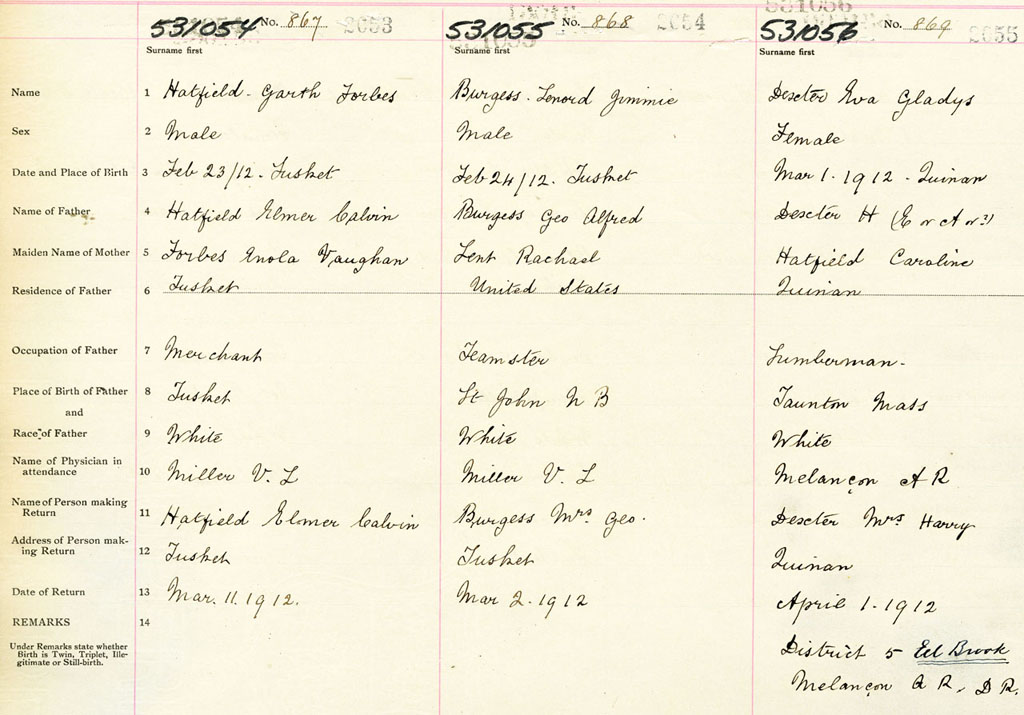 531054 No. 867 2053 531055 No. 868 2054 531056 No. 869 2055
Surname first Surname first Surname first
Name 1 Hatfield - Garth Forbes Burgess - Lenord Jimmie Dexter Eva Gladys
Sex 2 Male Male Female
Date and Place of Birth 3 Feb 23/12 - Tusket Feb 24/12. Tusket Mar 1 - 1912 - Quinan
Name of Father 4 Hatfield Elmer Calvin Burgess Geo Alfred Dexter H (E or A or ?)
Maiden Name of Mother 5 Forbes Enola Vaughan Lent Rachael Hatfield Caroline
Residence of Father 6 Tusket United States Quinan
Occupation of Father 7 Merchant Teamster Lumberman -
Place of Birth of Father 8 Tusket St John N B Taunton Mass
and
Race of Father 9 White White White
Name of Physician in
attendance 10 Miller V. L Miller V. L Melançon A R
Name of Person making
Return 11 Hatfield Elmer Calvin Burgess Mrs Geo. Dexter Mrs Harry
Address of Person mak-
ing Return 12 Tusket Tusket Quinan
Date of Return 13 Mar. 11. 1912. Mar 2 - 1912 April 1 - 1912
REMARKS 14
Under Remarks state whether
Birth is Twin, Triplet, Ille-
gitimate or Still-birth.
District 5 Eel Brook
Melançon A R, D R.